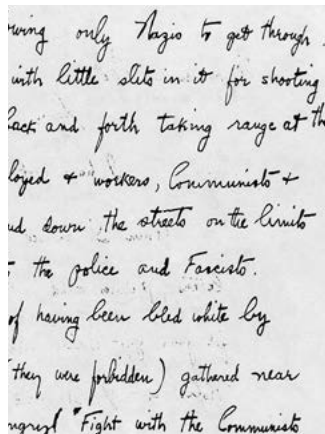 owing only Nazis to get through.
with little slits in it for shooting
back and forth taking range at the
loyed + workers, Communists +
nd down the streets on the limits
the police and Fascists.
of having been bled white by
(they were forbidden) gathered near
ngry! "Fight with the Communists